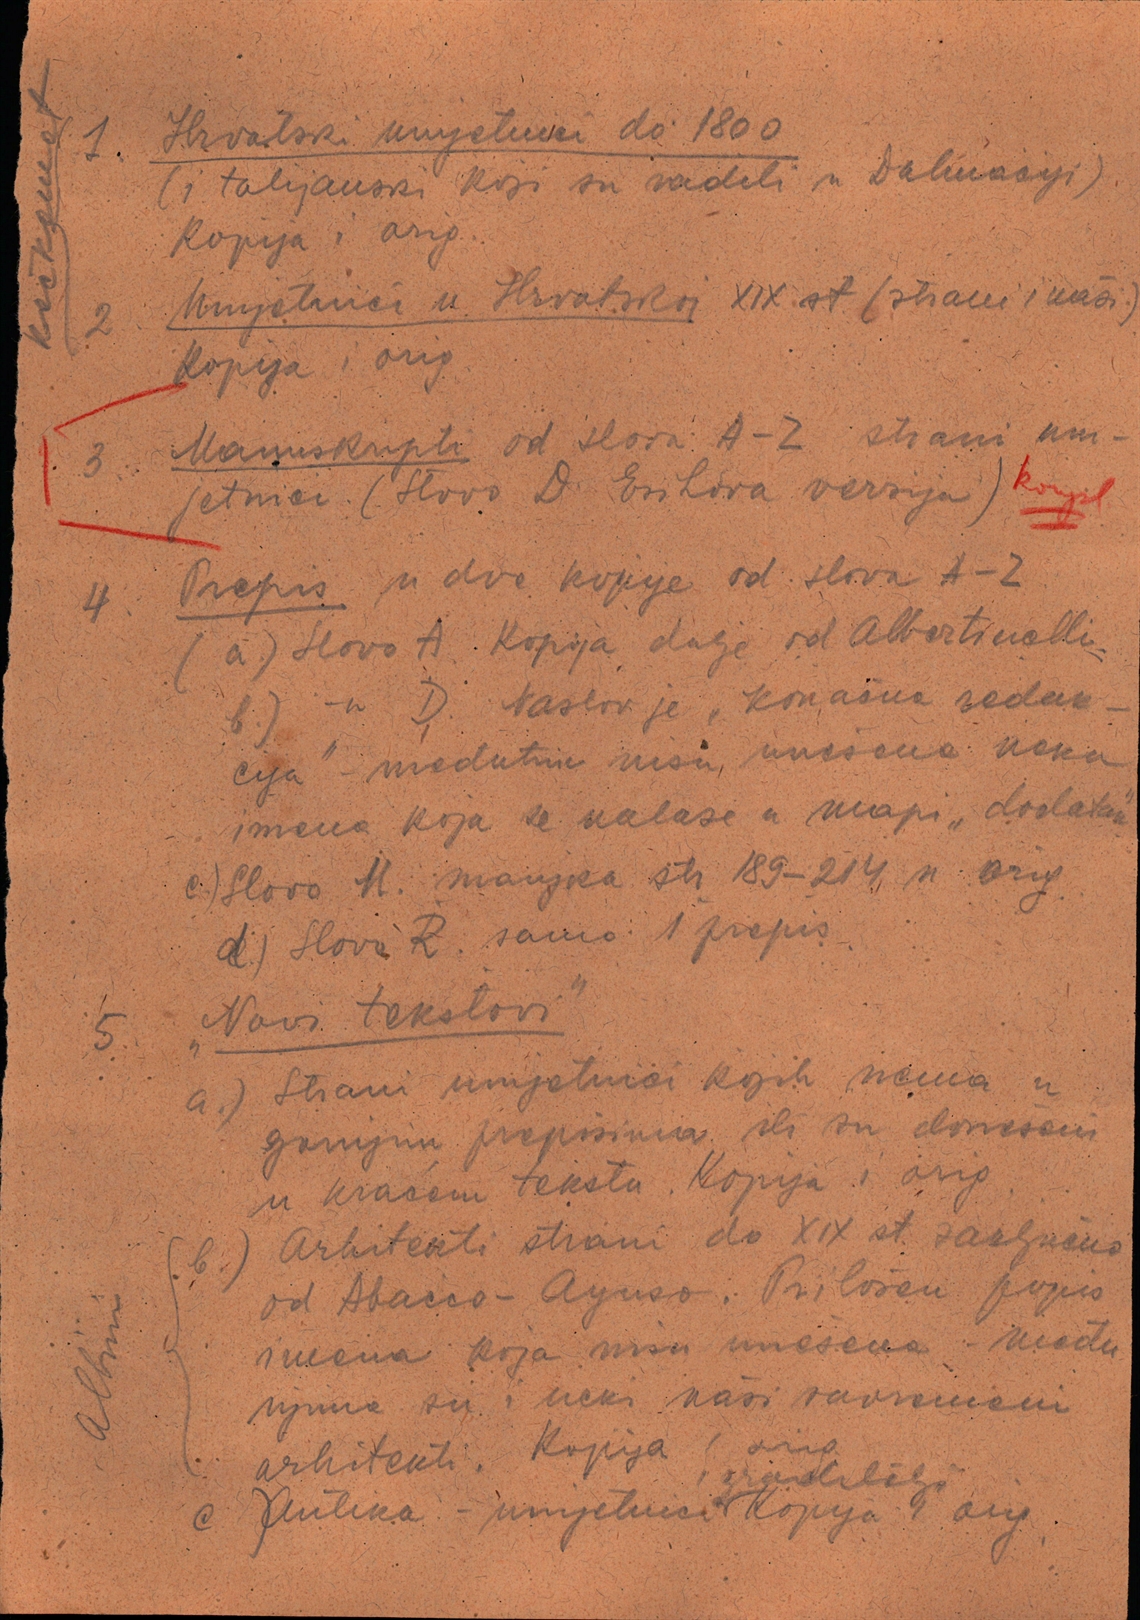 1. Hrvatski umjetnici do 1800
(i talijanski koji su radili u Dalmaciji)
Kopija i orig.
2 Umjetnici u Hrvatskoj XIX st (strani i naši.)
Kopija i orig
3 Manuskripti od slova A-Z strani um-
jetnici. (Slovo D. verzija)
4. Prepis u dve kopije od slova A-Z
(a.) Slovo A Kopija dalje od Albertinelli
b.) -"- D. Naslov je „konačna redak-
cija" - međutim nisu unešena neka
imena koja se nalaze u mapi „dodatak"
c.) Slovo M. manjka str 189-214 u orig
d) Slovo R. samo 1 prepis
5. „Novi tekstovi"
a.) Strani umjetnici kojih nema u
gornjim prepisima ili su donešeni
u kraćem tekstu. Kopija i orig
b.) Arhitekti strani do XIX st. zaključno
od Abacco - Ayuso. Priložen popis
imena koja nisu unešena - među
njima su i neki naši savremeni
arhitekti. Kopija i orig
i graditelji
c) Antika - umjetnici Kopija i orig.
Albini